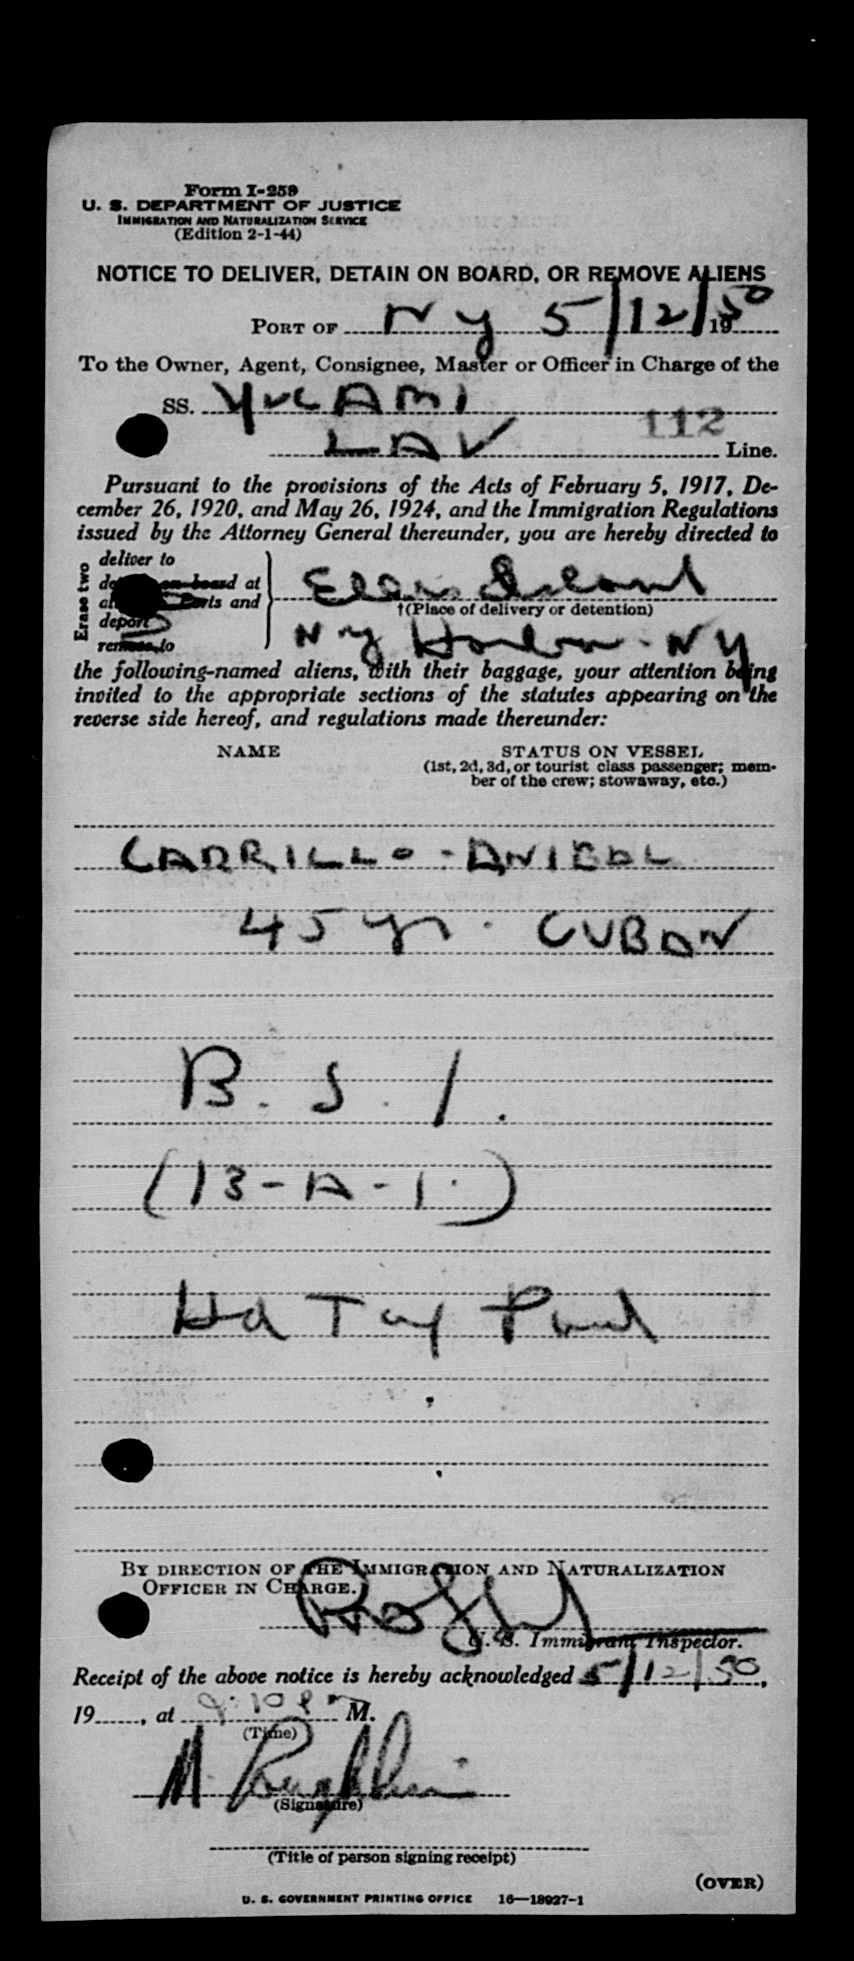 Form I-259
U. S. DEPARTMENT OF JUSTICE
IMMIGRATION AND NATURALIZATION SERVICE
(Edition 2-1-44)
NOTICE TO DELIVER, DETAIN ON BOARD, OR REMOVE ALIENS
PORT OF NY 5/12/1950
To the Owner, Agent, Consignee, Master or Officer in Charge of the
SS.
LAV 112 Line.
Pursuant to the provisions of the Acts of February 5, 1917, De-
cember 26, 1920, and May 26, 1924, and the Immigration Regulations
issued by the Attorney General thereunder, you are hereby directed to
Erase two
deliver to
on board at
and
deport
remove to
Ellis Island
†(Place of delivery or detention)
NY Harbor - NY
the following-named aliens, with their baggage, your attention being
invited to the appropriate sections of the statutes appearing on the
reverse side hereof, and regulations made thereunder:
NAME STATUS ON VESSEL
(1st, 2d, 3d, or tourist class passenger; mem-
ber of the crew; stowaway, etc.)
CARRILLO - ANIBAL
45 yr. CUBAN
B. S. I.
(13-A-1.)
Hd Tax Paid
BY DIRECTION OF THE IMMIGRATION AND NATURALIZATION
OFFICER IN CHARGE.
U. S. Immigrant Inspector.
Receipt of the above notice is hereby acknowledged 5/12/50,
19......, at M.
(Time)
(Signature)
(Title of person signing receipt)
(OVER)
U. S. GOVERNMENT PRINTING OFFICE 16—18927-1